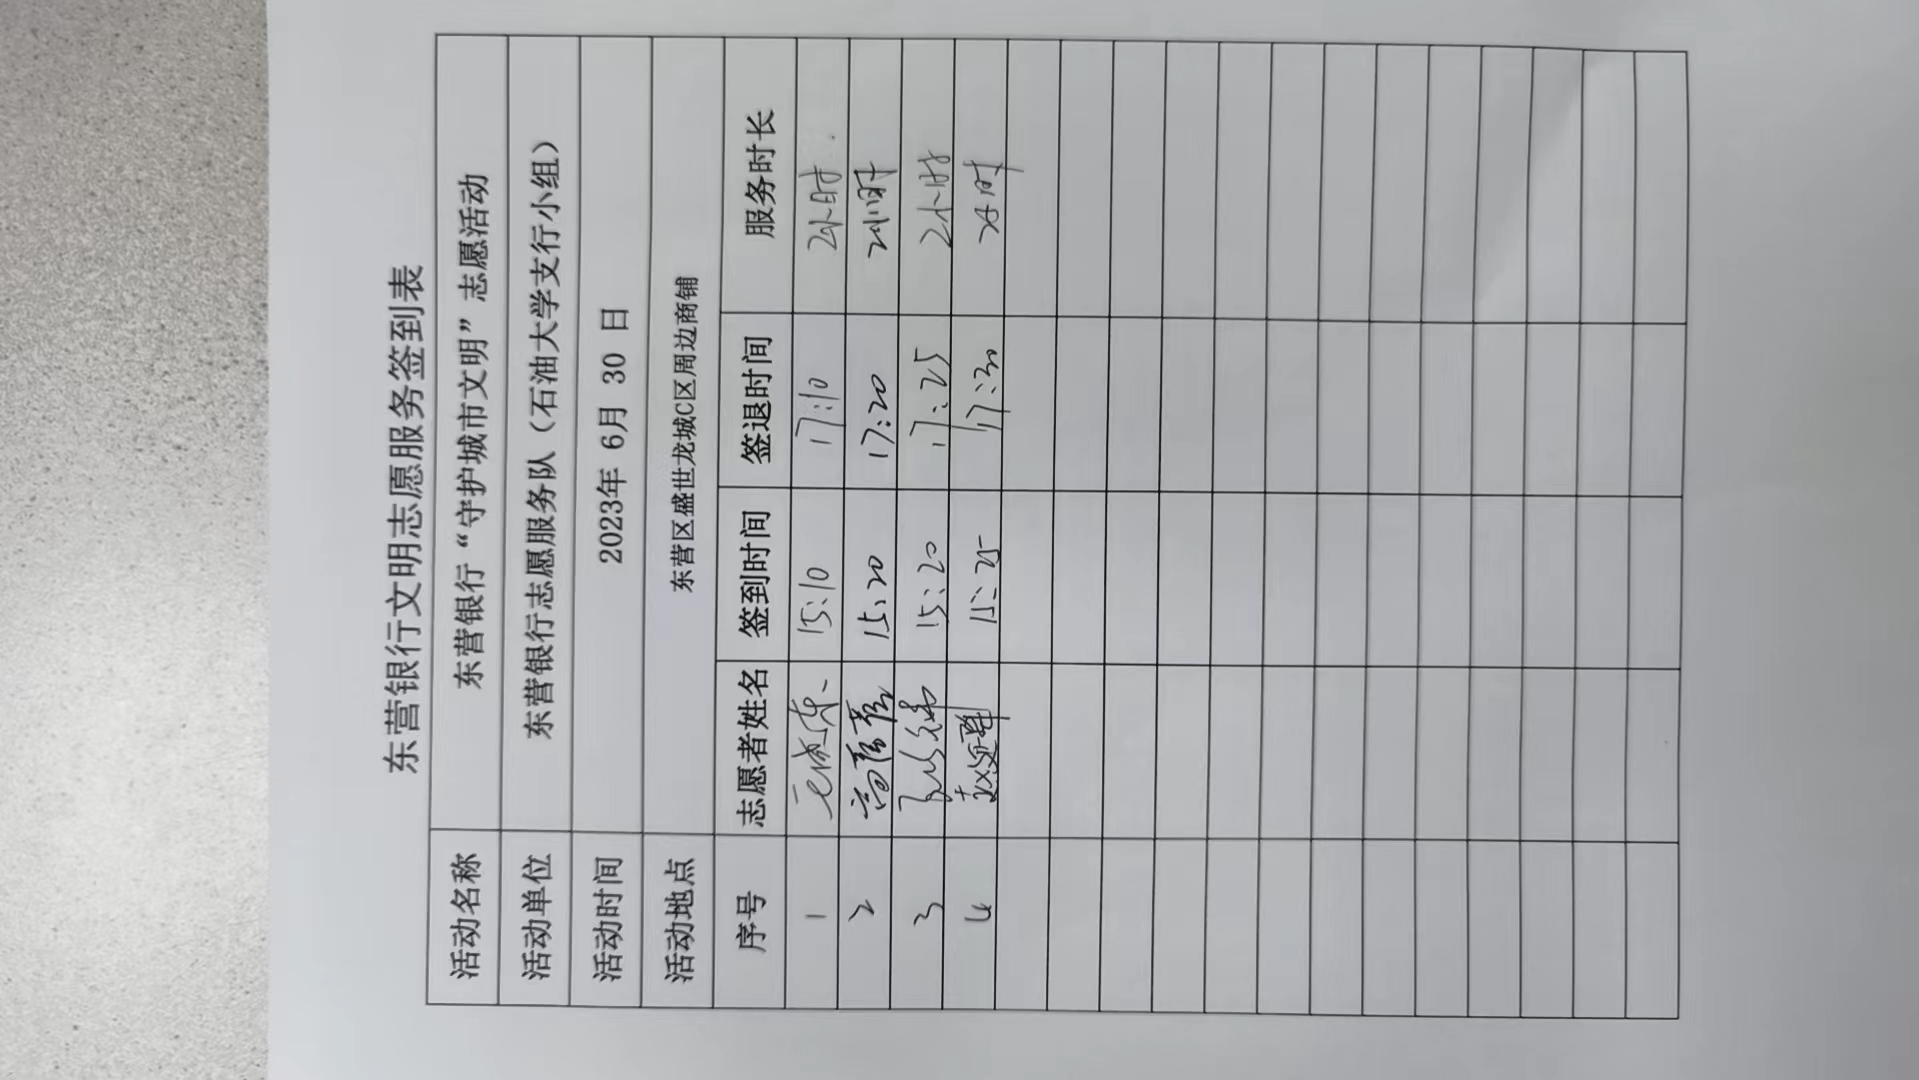 东营银行文明志愿服务签到表
活动名称 东营银行“守护城市文明”志愿活动
活动单位 东营银行志愿服务队（石油大学支行小组）
活动时间 2023年 6月 30 日
活动地点 东营区盛世龙城C区周边商铺
序号 志愿者姓名 签到时间 签退时间 服务时长
1 15:10 17:10 2小时
2 15:20 17:20 2小时
3 15:20 17:25 2小时
4 15:25 17:30 2小时